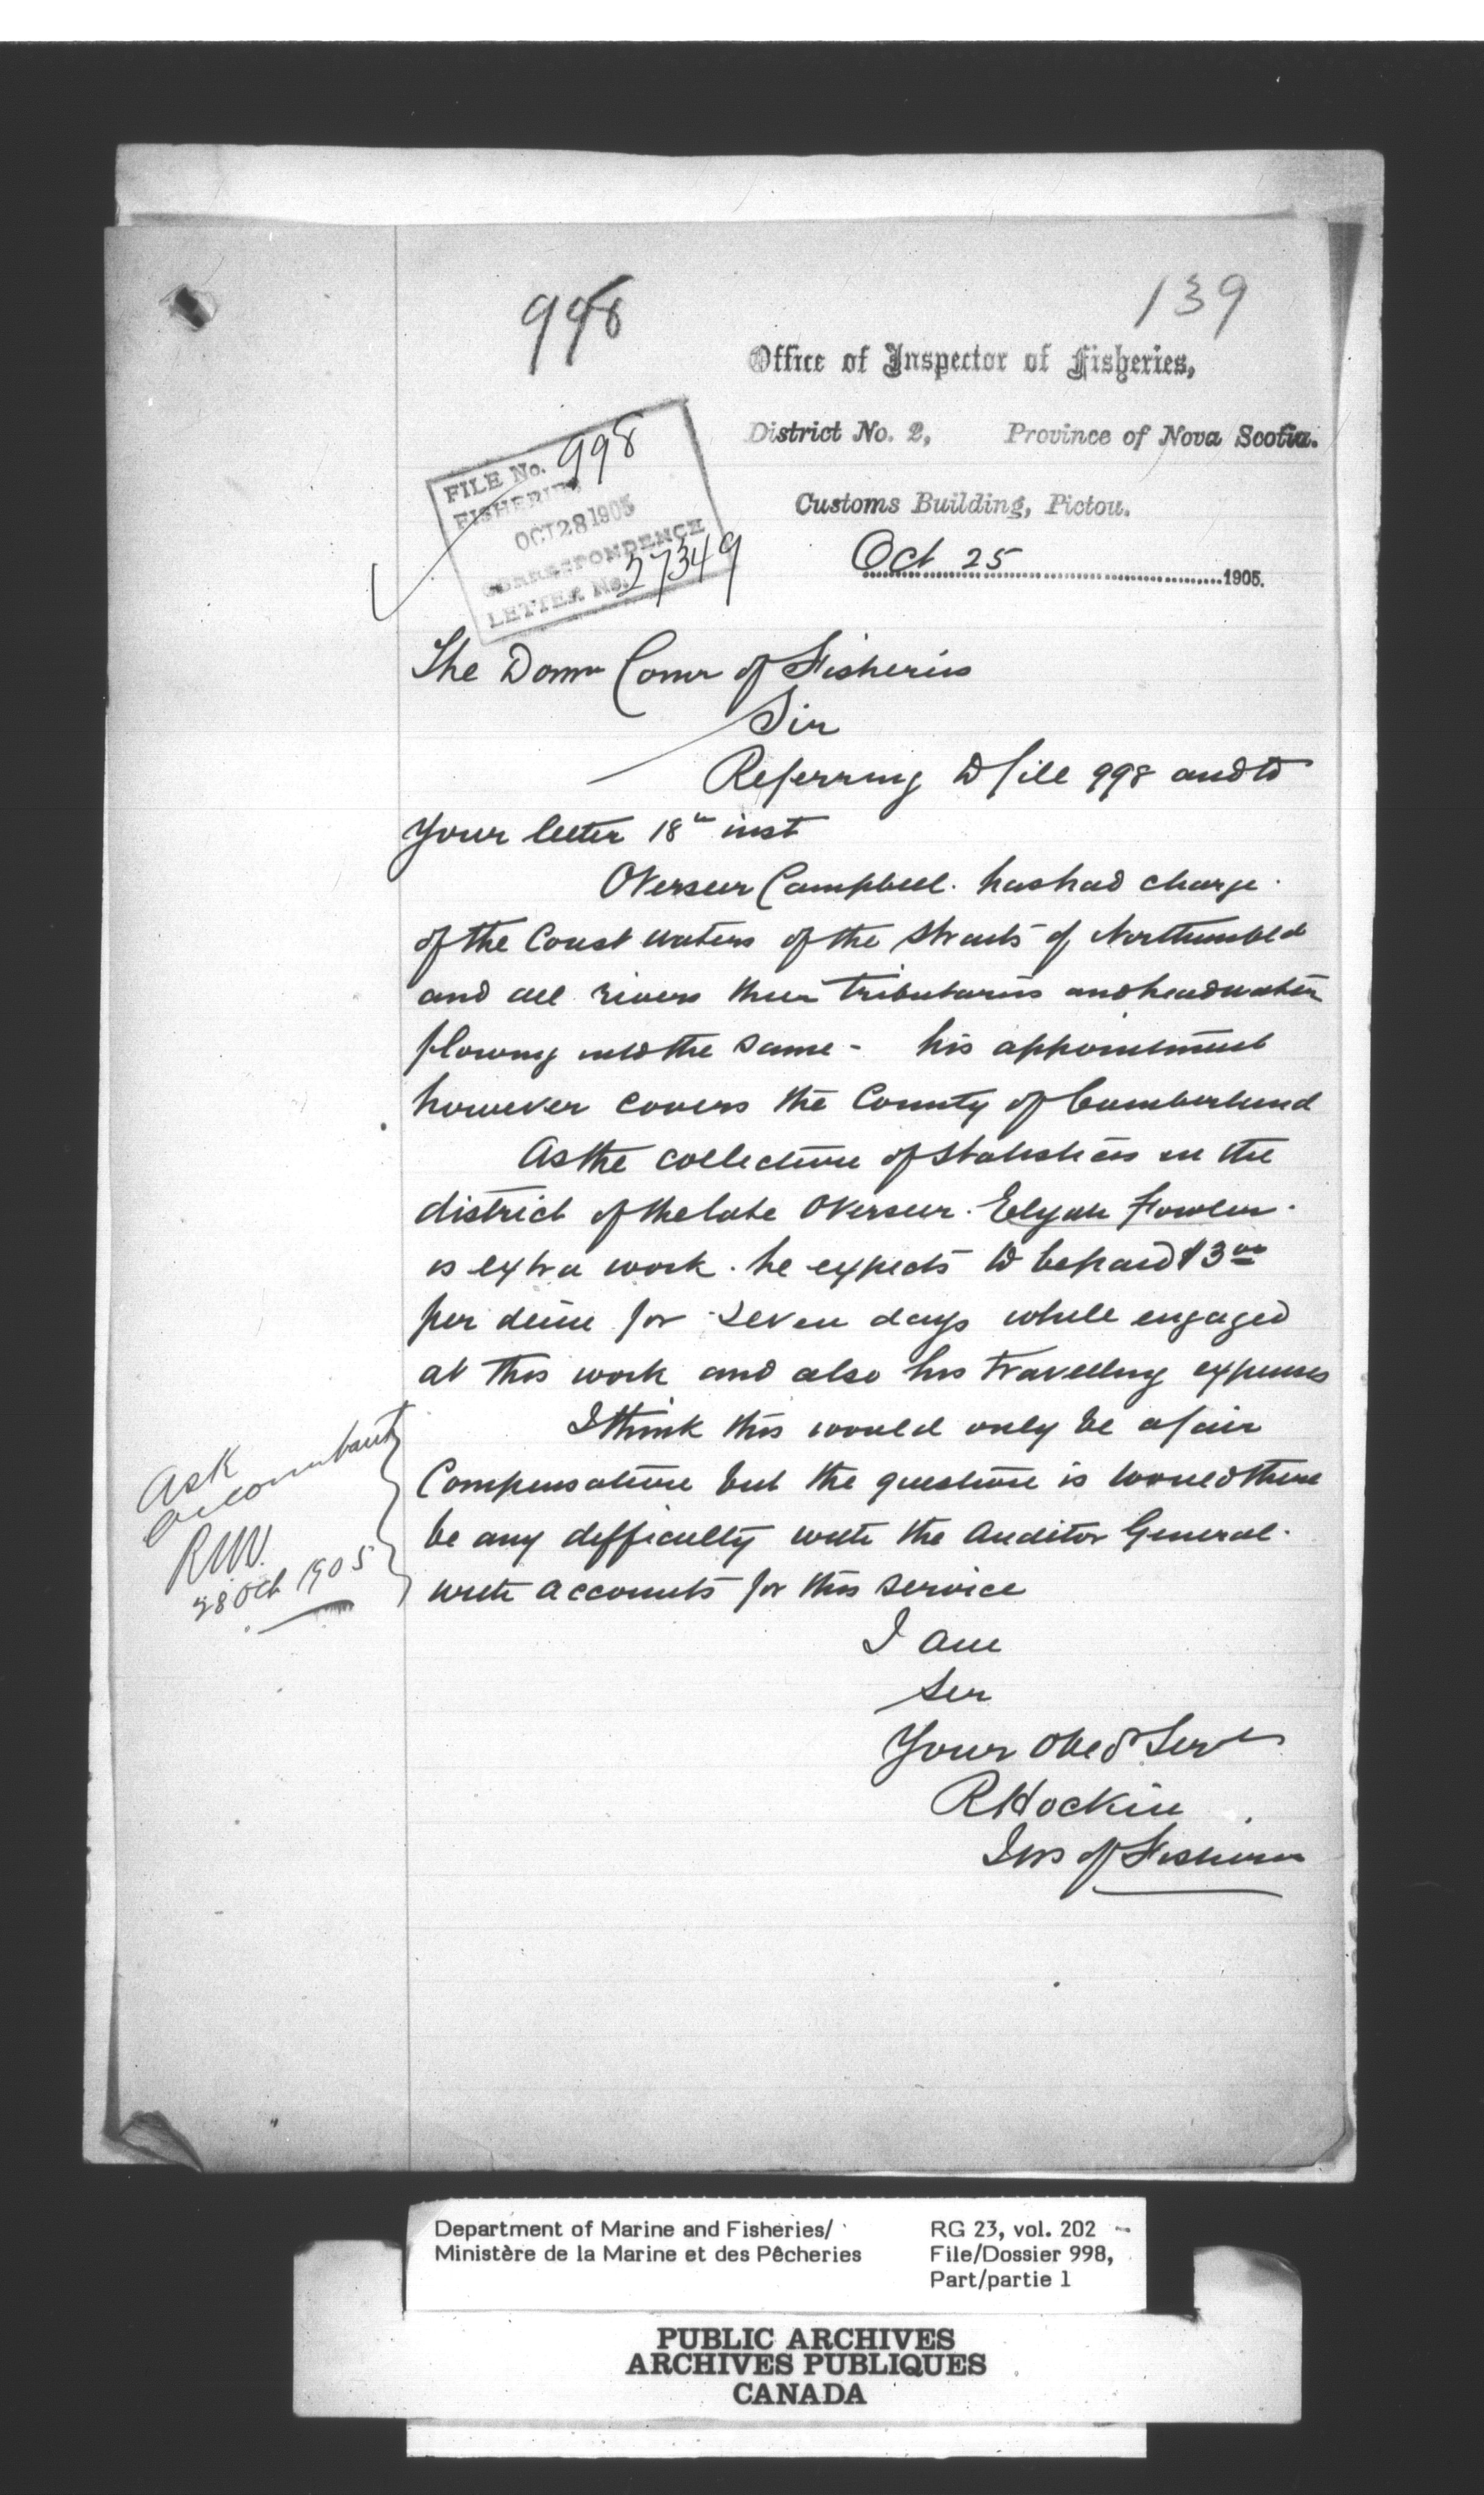 998
139
Office of Inspector of Fisheries,
District No. 2, Province of Nova Scotia.
Customs Building, Pictou.
Oct 25 1905.
FILE No. 998
FISHERIES
OCT 28 1905
CORRESPONDENCE
LETTER No. 27349
The Domn Comr of Fisheries
Sir
Referring to file 998 and to
Your letter 18th inst
Overseer Campbell. has had charge
of the Coast waters of the Straits of Northumbld
and all rivers their tributaries and headwaters
flowing into the same - his appointment
however covers the County of Cumberland
As the collection of Statistics in the
district of the late Overseer. Elijah Fowler.
is extra work. he expects to be paid $3 00
per deim for seven days while engaged
at this work and also his travelling expenses
I think this would only be a fair
Compensation but the question is would there
be any difficulty with the Auditor General.
with accounts for this service
I am
Sir
Your Obed Servt
R Hockin
Ins of Fisheries
Ask
Accountant
RW.
28 Oct 1905
Department of Marine and Fisheries/
Ministère de la Marine et des Pêcheries
RG 23, vol. 202
File/Dossier 998,
Part/partie 1
PUBLIC ARCHIVES
ARCHIVES PUBLIQUES
CANADA